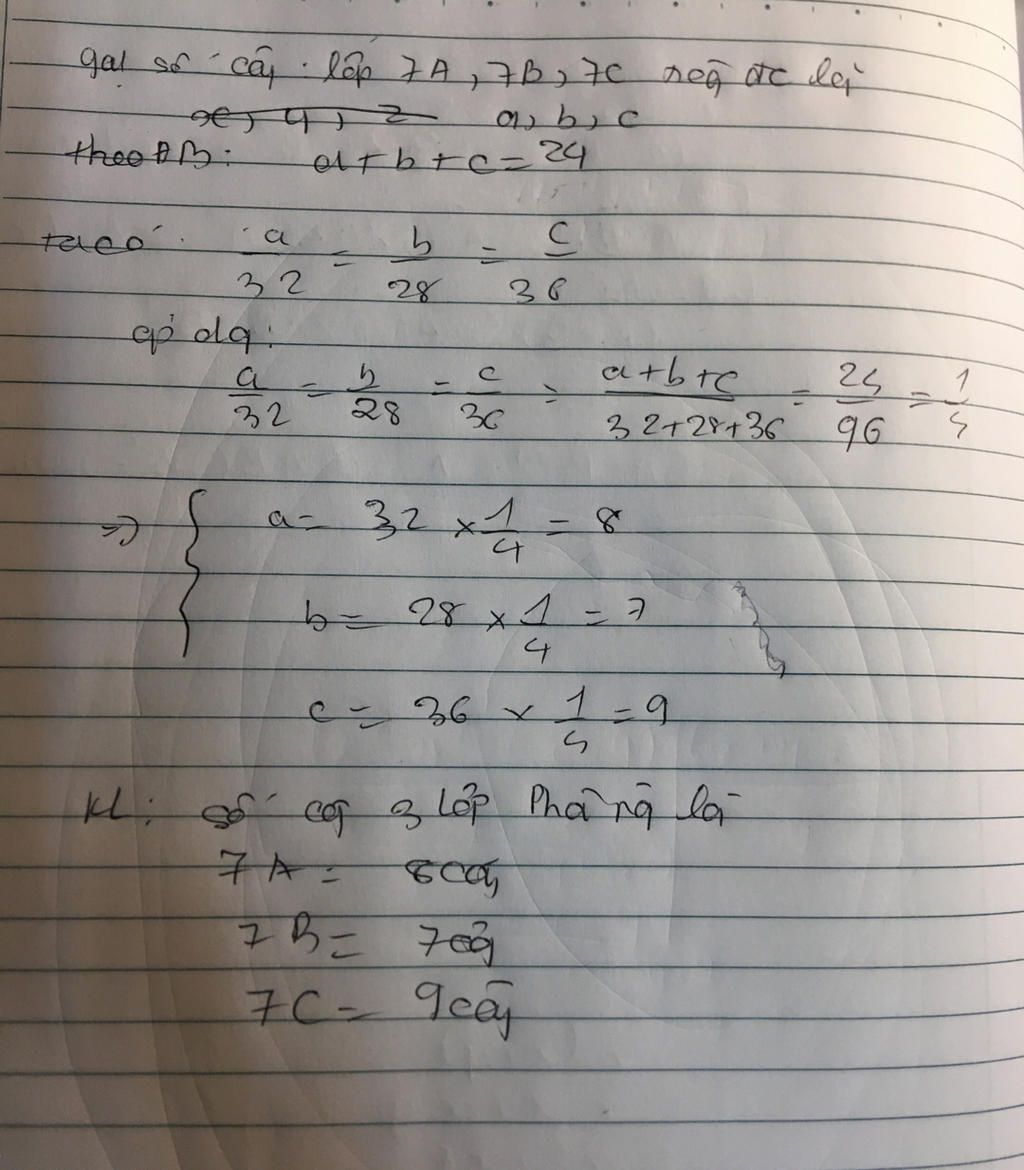 gọi số cây lớp 7A, 7B, 7C là
x, y, z a, b, c
theo ĐB: a + b + c = 24
ta có: a/32 = b/28 = c/36
áp dg:
a/32 = b/28 = c/36 = a+b+c/32+28+36 = 24/96 = 1/4
=> { a = 32 × 1/4 = 8
b = 28 × 1/4 = 7
c = 36 × 1/4 = 9
KL: số cây 3 lớp là
7A = 8 cây
7B = 7 cây
7C = 9 cây